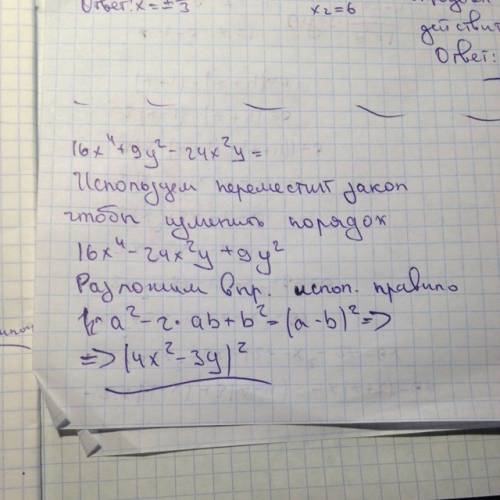 Ответ: x = ± 3
x₂ = 6
действит
Ответ:
16x⁴ + 9y² - 24x²y =
Используем переместит закон
чтобы изменить порядок
16x⁴ - 24x²y + 9y²
Разложим выр. испол. правило
a² - 2 · ab + b² = (a - b)² =>
=> (4x² - 3y)²